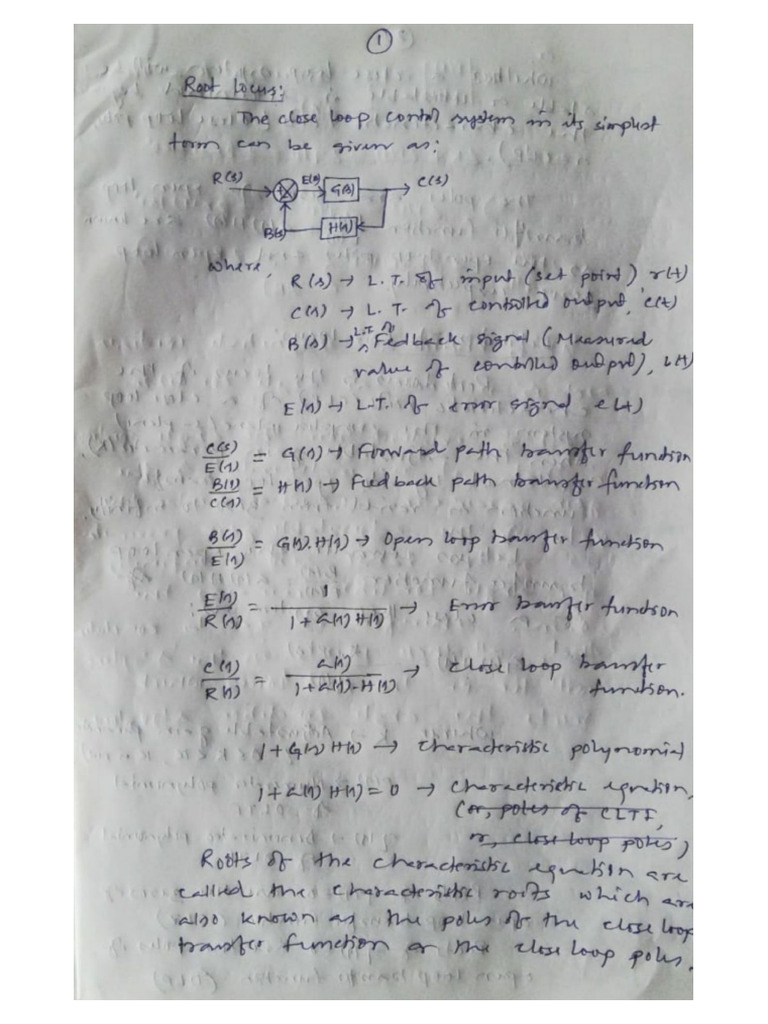 1
Root locus:
The close loop control system in its simplest
form can be given as:
R(s) E(s) G(s) C(s)
B(s) H(s)
where,
R(s) → L.T. of input (set point) r(t)
C(s) → L.T. of controlled output, c(t)
B(s) → L.T. of Feedback signal (Measured
value of controlled output), b(t)
E(s) → L.T. of error signal, e(t)
C(s)/E(s) = G(s) → Forward path transfer function
B(s)/C(s) = H(s) → Feedback path transfer function
B(s)/E(s) = G(s).H(s) → Open loop transfer function
E(s)/R(s) = 1/(1+G(s)H(s)) → Error transfer function
C(s)/R(s) = G(s)/(1+G(s).H(s)) → close loop transfer
function.
1+G(s)H(s) → characteristic polynomial
1+G(s)H(s)=0 → characteristic equation,
(or, poles of CLTF,
or, close loop poles)
Roots of the characteristic equation are
called the characteristic roots which are
also known as the poles of the close loop
transfer function or the close loop poles.